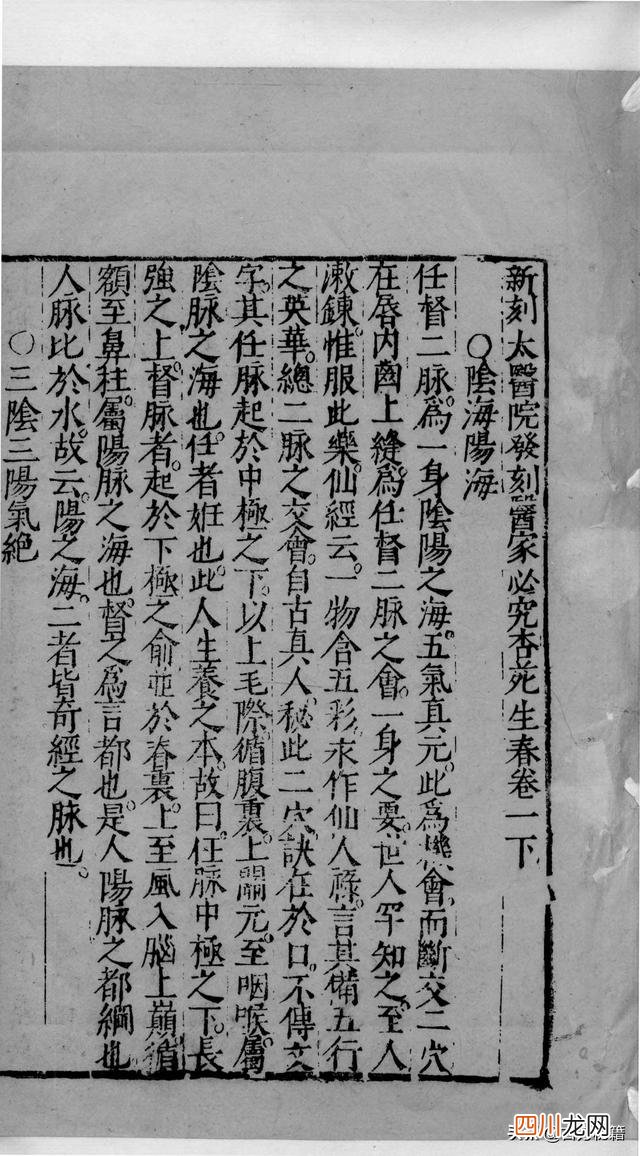 新刻太醫院發刻醫家必究杏苑生春卷一下
○陰海陽海
任督二脉爲一身陰陽之海。五氣真元。此爲機會。而斷交二穴
在唇内齒上縫。爲任督二脉之會。一身之要。世人罕知之。至人
漱鍊。惟服此藥。仙經云。一物含五彩。永作仙人祿。言其備五行
之英華。總二脉之交會。自古真人。秘此二穴。訣在於口。不傳文
字。其任脉起於中極之下。以上毛際。循腹裏。上關元。至咽喉。屬
陰脉之海也。任者姙也。此人生養之本。故曰任脉中極之下。長
強之上。督脉者。起於下極之俞。並於脊裏。上至風入腦上巔循
額至鼻柱。屬陽脉之海也。督之爲言都也。是人陽脉之都綱也
人脉比於水。故云。陽之海。二者皆奇經之脉也。
○三陰三陽氣絶
四川龙网